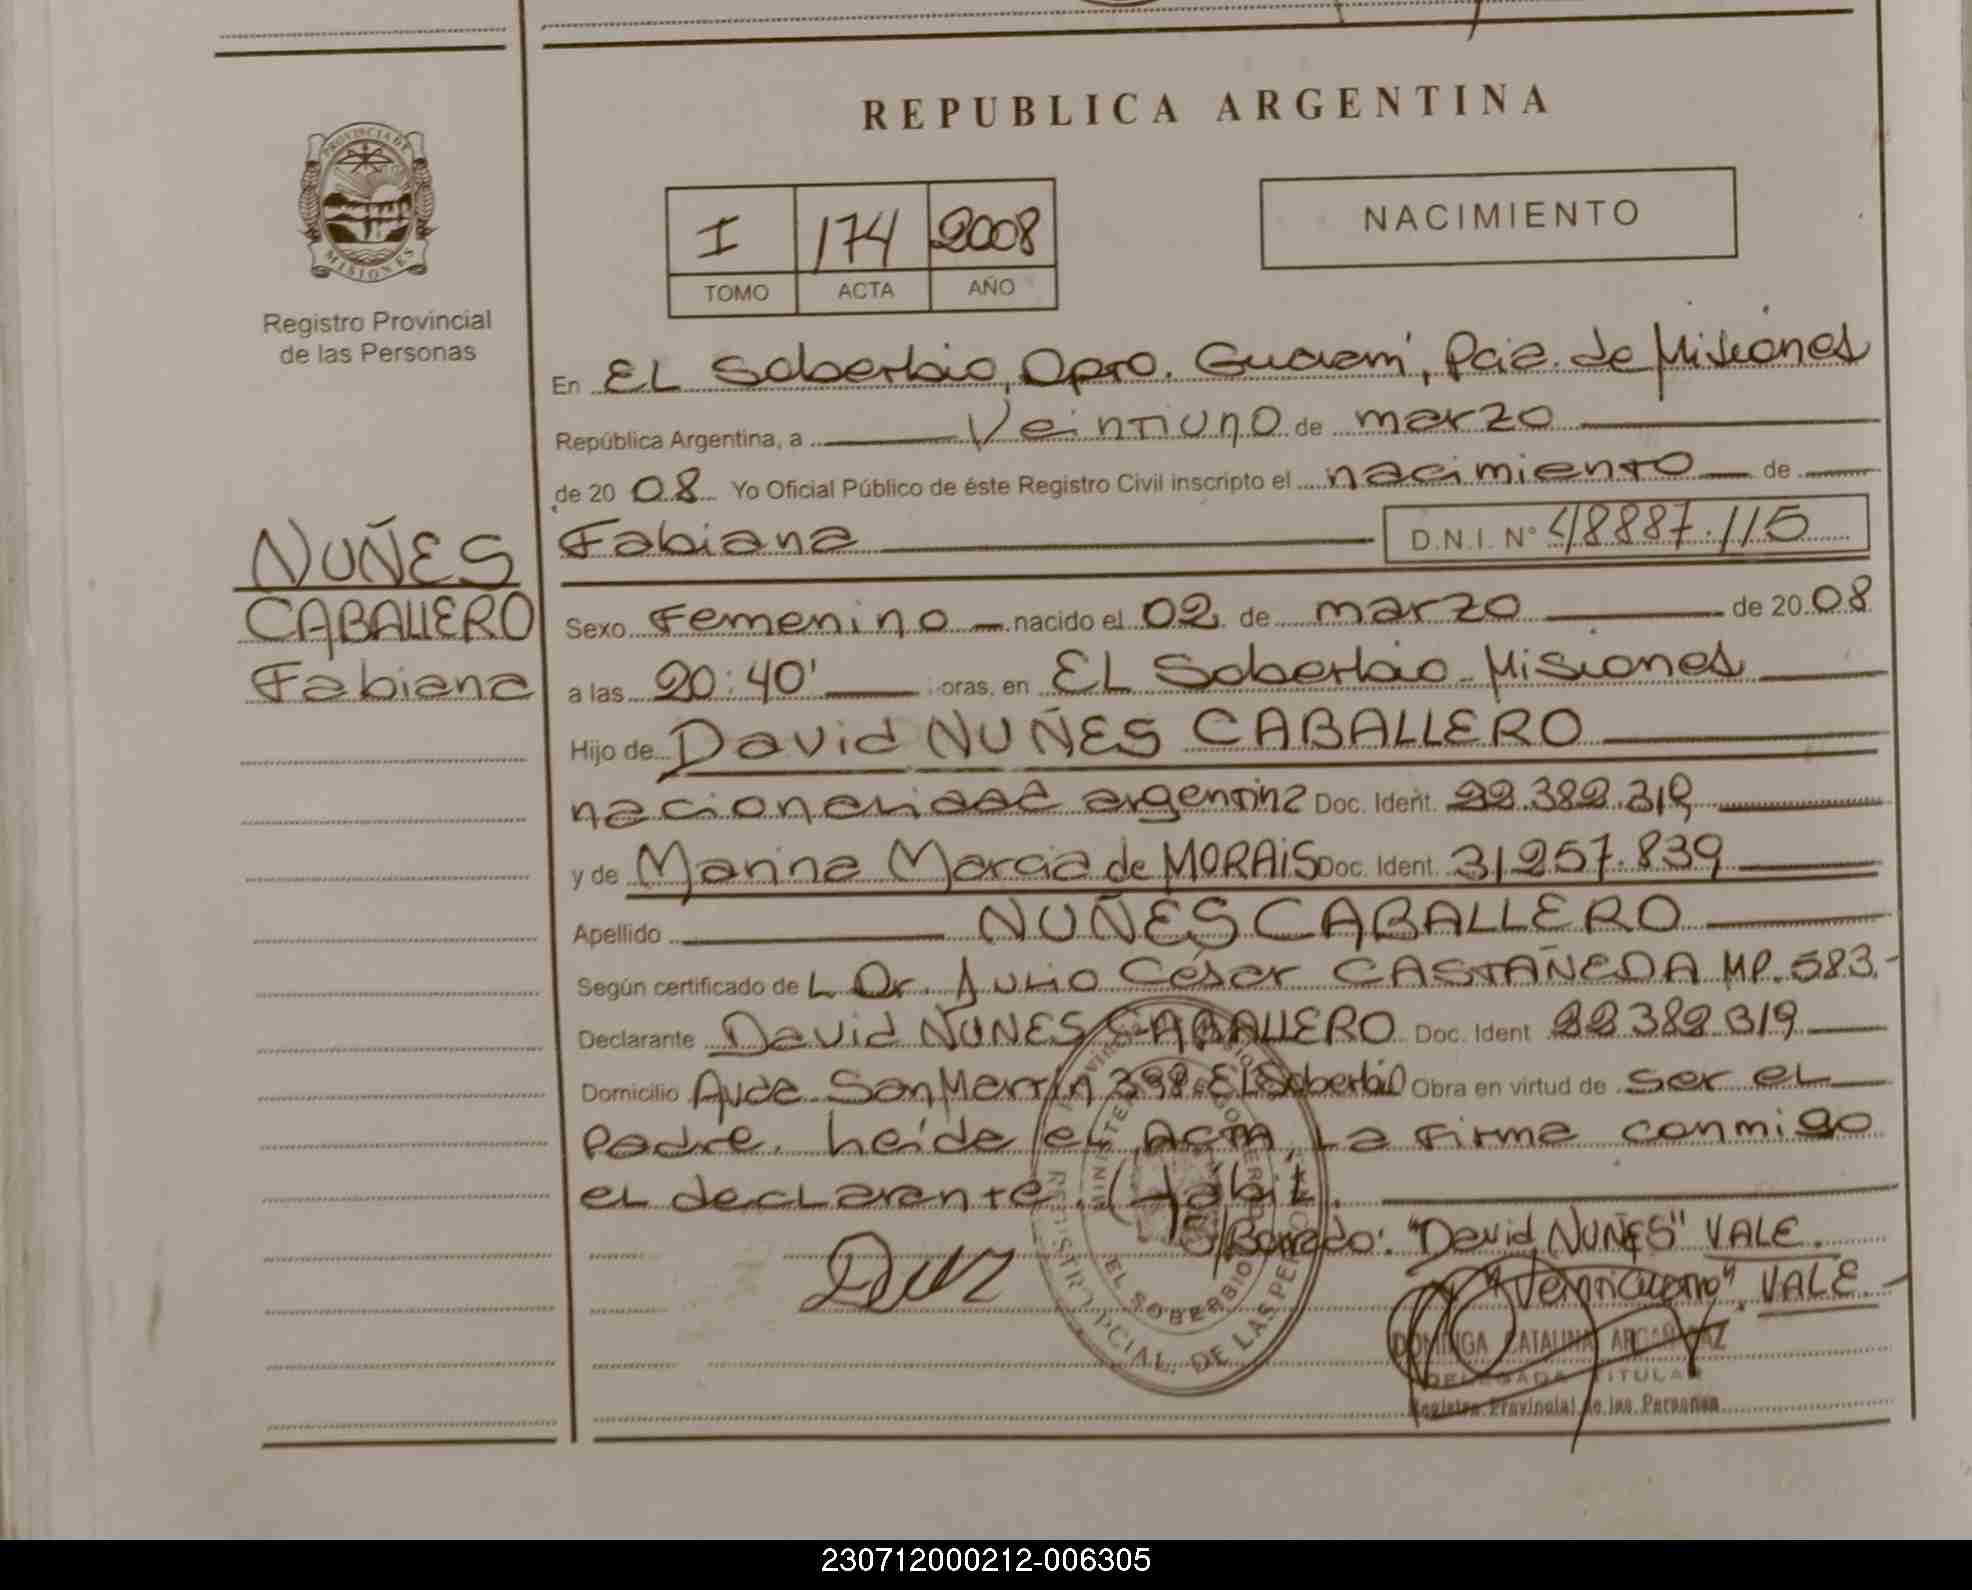 REPUBLICA ARGENTINA
PROVINCIA DE MISIONES
Registro Provincial
de las Personas
I 174 2008
TOMO ACTA AÑO
NACIMIENTO
En EL Soberbio, Dpto. Guaraní, Pcia. de Misiones
República Argentina, a Veintiuno de marzo
de 20 08 Yo Oficial Público de éste Registro Civil inscripto el nacimiento de
Fabiana D.N.I. Nº 48887.115
NUÑES
CABALLERO
Fabiana
Sexo Femenino nacido el 02 de marzo de 20 08
a las 20:40' oras, en EL Soberbio - Misiones
Hijo de David NUÑES CABALLERO
nacionalidad argentina Doc. Ident. 22.382.319
y de Marina Marcia de MORAIS Doc. Ident. 31257.839
Apellido NUÑES CABALLERO
Según certificado de L Dr. Julio César CASTAÑEDA MP. 583.-
Declarante David NUNES CABALLERO Doc. Ident 22382319
Domicilio Avda San Martín 398 El Soberbio Obra en virtud de ser el
Padre. heida el Acta, La firma conmigo
el declarante. (Hábil.
S/Borrado: "David NUÑES" VALE.
VALE.
REGISTRO PCIAL. DE LAS PERSONAS
EL SOBERBIO
DOMINGA CATALINA
DELEGADA TITULAR
Registro Provincial de las Personas
230712000212-006305